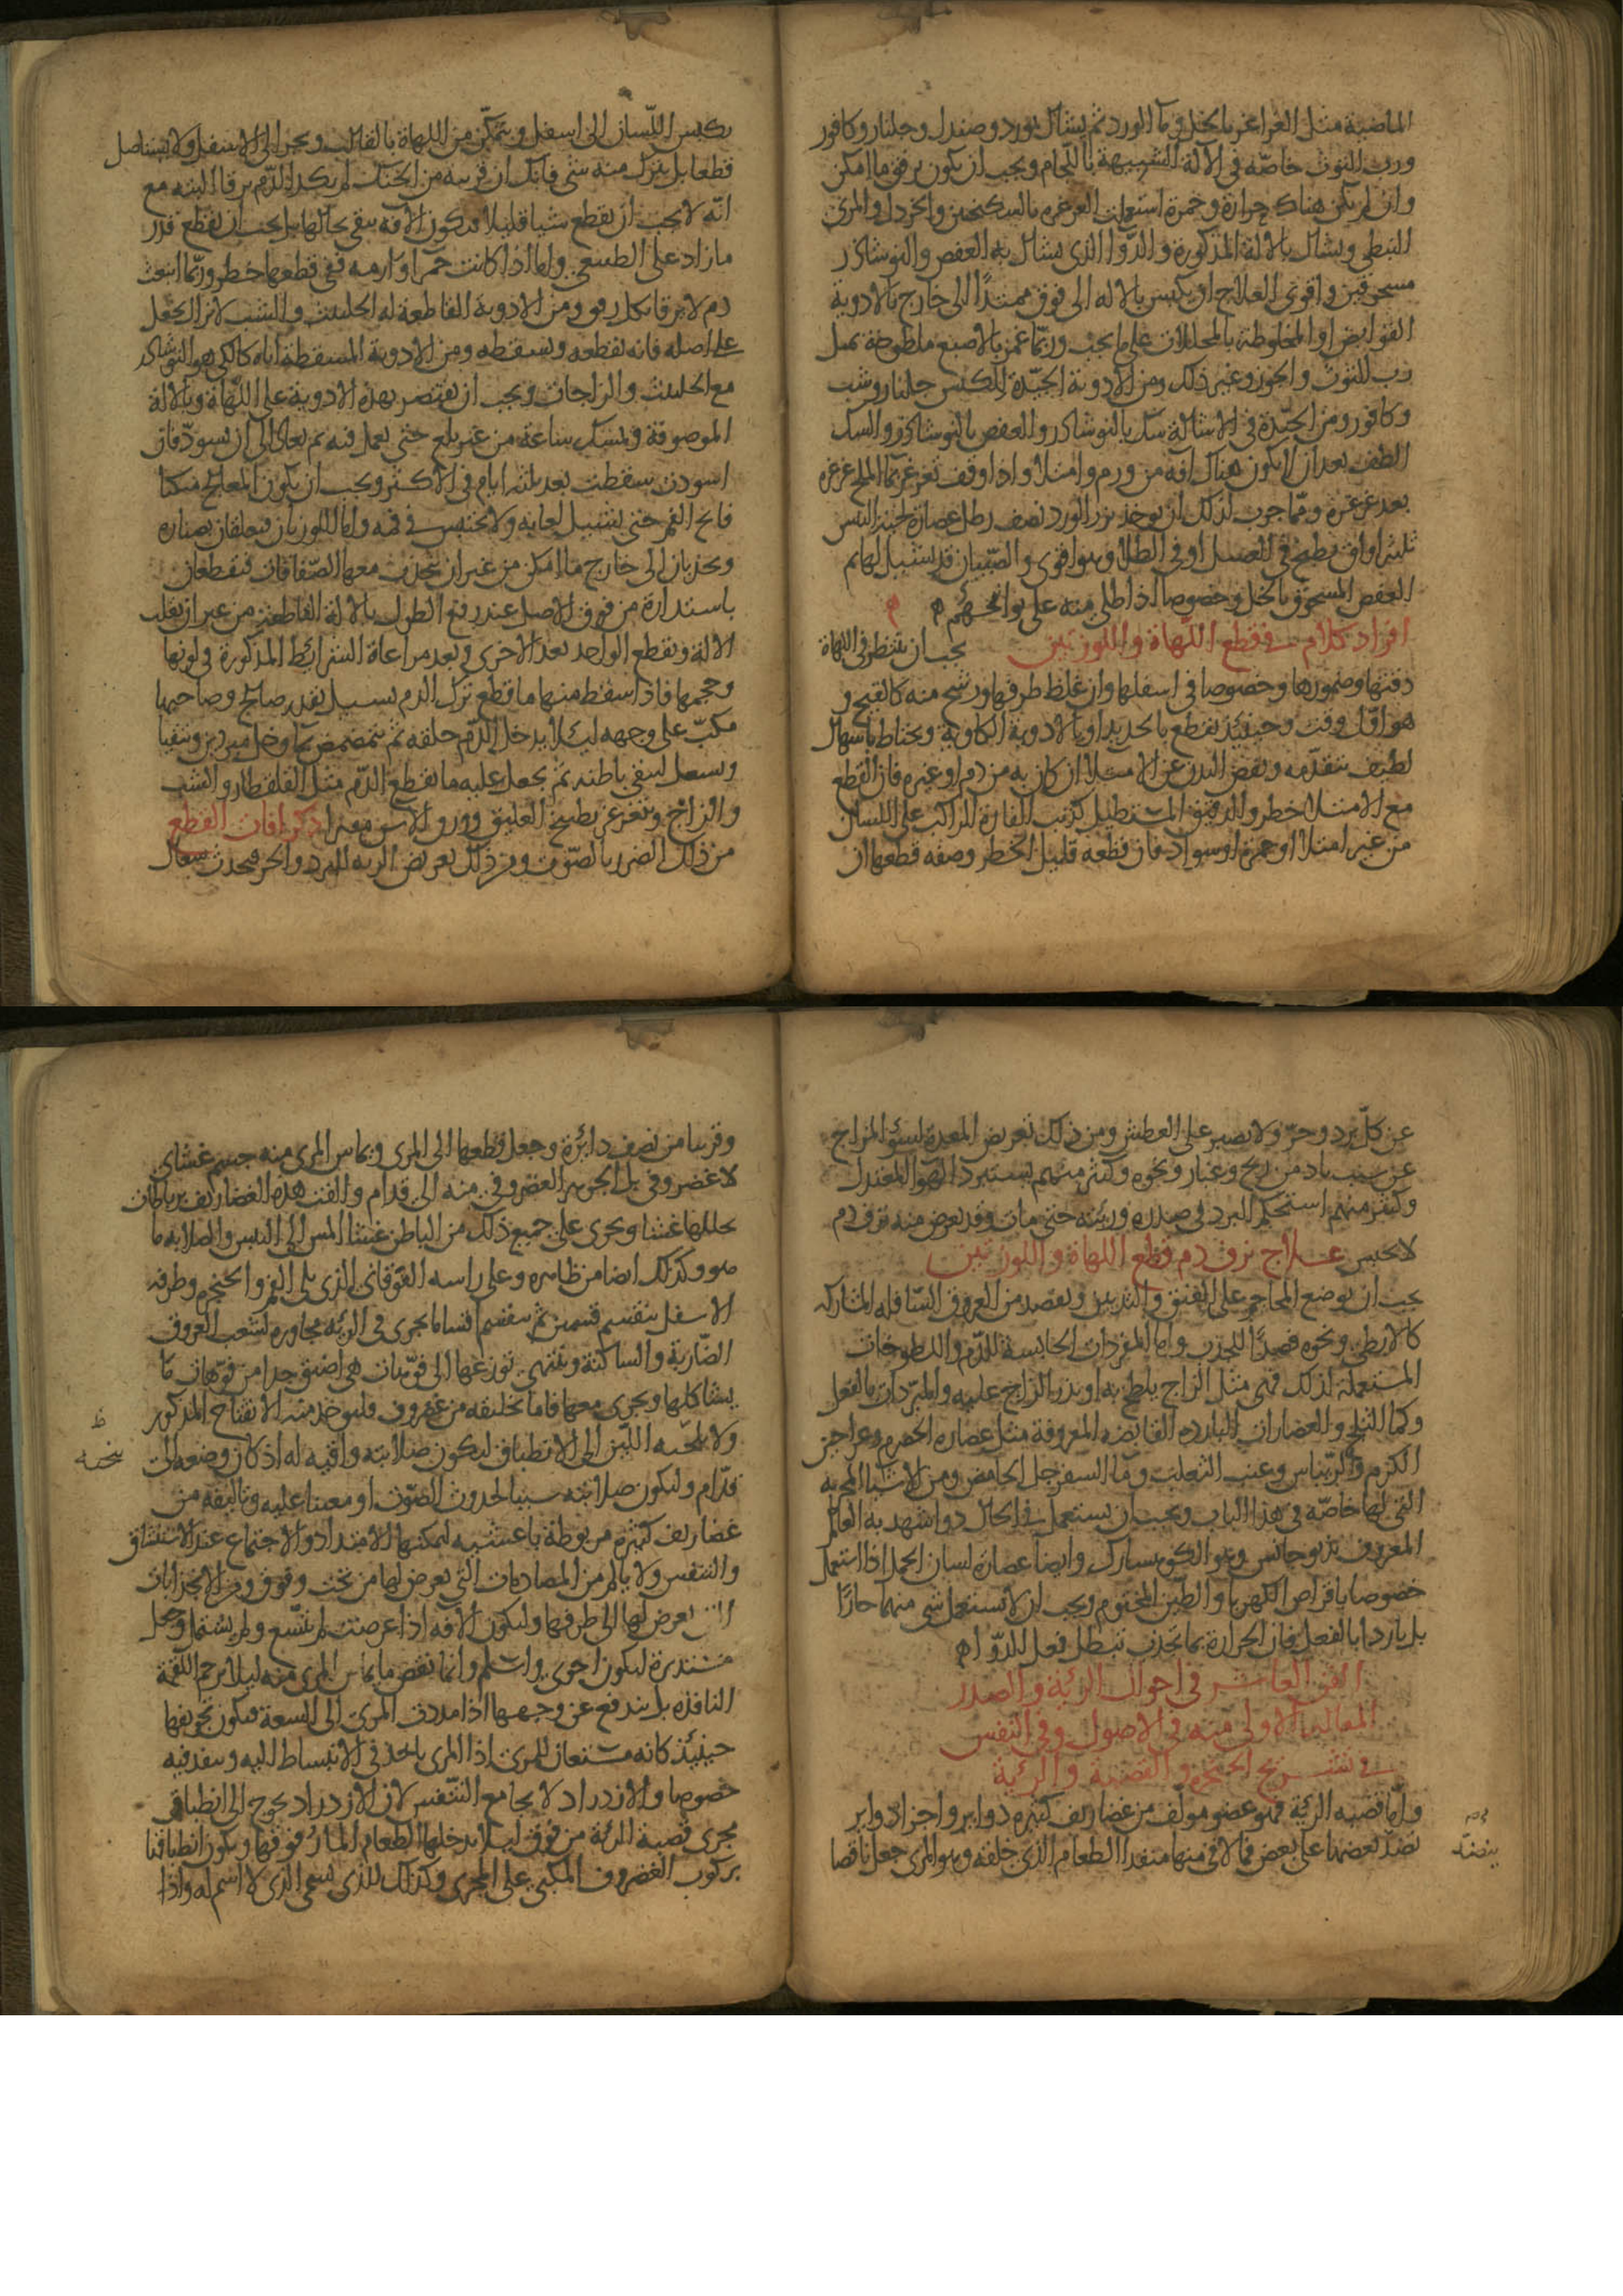 الماضية مثل الغراغر بالخل وماء الورد ثم يشال بورد وصندل وجلنار وكافور
ورب التوث خاصة في الآلة الشبيهة باللجام ويجب ان يكون برفق ما امكن
وان لم يكن هناك حرارة وحمرة استعملت الغرغرة بالسكنجبين والخردل والمرى
النبطي ويشال بالالة المذكورة والدواء الذى يشال به العفص والنوشاذر
مسحوقين واقوى العلاج ان يكبس بالاله الى فوق ممتدا الى خارج بالادوية
القوابض او المخلوطة بالمحللات على ما يجب وربما غمز بالاصبع ملطوخة بمثل
رب التوث والجوز وغير ذلك ومن الادوية الجيدة للكبس جلنار وشب
وكافور ومن الجيدة في الاشالة سك بالنوشاذر والعفص بالنوشاذر والسك
الطف بعد ان لا يكون هناك افه من ورم وامتلاء واذا وقف تغرغر بماء الملح غرغرة
بعد غرغرة ومما جرب لذلك ان يوخذ بزر الورد نصف رطل عصارة لحية التيس
ثلثه اواق يطبخ في العسل او في الطلاء وهو اقوى والصبيان قد يشيل لهاتهم
العفص المسحوق بالخل وخصوصا اذا طلى منه على يوافخهم
افراد كلام في قطع اللهاة واللوزتين يجب ان ينظر في اللهاة
دقتها وضمورها وخصوصا في اسفلها وان غلظ طرفها ورشح منه كالقيح و
هو اول وقت وحينئذ يقطع بالحديد او بالادوية الكاوية ويحتاط باسهال
لطيف تتقدمه ونفض البدن عن الامتلاء ان كان به من دم او غيره فان القطع
مع الامتلاء خطر والدقيق المستطيل كذنب الفارة الراكب على اللسان
من غير امتلاء او حمرة او سواد فان قطعه قليل الخطر وصفه قطعها ان
يكبس اللسان الى اسفل ويتمكن من اللهاة بالقالب ويجر الى الاسفل ولا يستاصل
قطعا بل يترك منه شي فانك ان قربته من الحنك لم يكد الدم يرقا البته مع
انه لا يجب ان يقطع شيا قليلا فتكون الافه تبقى بحالها بل يجب ان يقطع قدر
ما زاد على الطبيعى واما اذا كانت حمراء وارمه ففى قطعها خطر وربما انبعث
دم لا يرقا بكل رقوء ومن الادوية القاطعة له الحلتيت والشب لا نزال يجعل
على اصله فانه يقطعه ويسقطه ومن الادوية المسقطة اياه كالكي هو النوشاذر
مع الحلتيت والزاجات ويجب ان يقتصر بهذه الادوية على اللهاة وبالالة
الموصوفة ويمسك ساعة من غير بلع حتى يعمل فيه ثم يعاد الى ان يسود فان
اسودت سقطت بعد ثلثه ايام في الاكثر ويجب ان يكون المعالج منكبا
فاتح الفم حتى يسيل لعابه ولا يحتبس في فمه واما اللوزتان فيعلقان بصنارة
ويجذبان الى خارج ما امكن من غير ان تنجذب معها الصفاقات فتقطعان
باستدارة من فوق الاصل عند ربع الطول بالالة القاطعة من غير ان تقلب
الالة وتقطع الواحد بعد الاخرى وبعد مراعاة الشرائط المذكورة في لونها
وحجمها فاذا سقط منها ما قطع ترك الدم يسيل بقدر صالح وصاحبها
مكب على وجهه ليلا يدخل الدم حلقه ثم يتمضمض بماء وخل مبردين ويتقيا
ويسعل لينقى باطنه ثم يجعل عليه ما يقطع الدم مثل القلقطار والشب
والزاج ويتغرغر بطبيخ العليق وورق الاس مفترا ذكر افات القطع
من ذلك الضرر بالصوت ومن ذلك تعريض الرية للبرد والحر فيحدث سعال
عن كل برد وحر ولا يصبر على العطش ومن ذلك تعريض المعدة لسوء المزاج
عن سبب باد من ريح وغبار ونحوه وكثير منهم يستبرد الهواء المعتدل
وكثير منهم استحكم البرد في صدره ورئته حتى مات وقد يعرض منه نزف دم
لا يحبس علاج نزف دم قطع اللهاة واللوزتين
يجب ان توضع المحاجم على العنق والثديين ويفصد من العروق السافله المشاركه
كالابطي ونحوه فصدا للجذب واما المفردات الحابسة للدم واللطوخات
المستعملة لذلك فهى مثل الزاج يلطخ به او يذر الزاج عليه والمبردات بالفعل
وكماء الثلج والعصارات الباردة القابضه المعروفة مثل عصارة الحصرم وعراجين
الكرم والريباس وعنب الثعلب وماء السفرجل الحامض ومن الاشياء المجربه
التي لها خاصة في هذا الباب ويجب ان يستعمل في الحال دواء شهد به العالم
المعروف بذيوجانس وهو الكوهبارك وايضا عصارة لسان الحمل اذا استعمل
خصوصا باقراص الكهربا والطين المختوم ويجب ان لا تستعمل شى منهما حارا
بل باردا بالفعل فان الحرارة بما تجذب تبطل فعل الدواء
الفن العاشر في احوال الرئة والصدر
المقالة الاولى منه في الاصول وفي النفس
في تشريح الحنجرة والقصبة والرئة
واما قصبه الرئة فهو عضو مولف من غضاريف كثيره دواير واجزاء دواير
نضد بعضها على بعض فما لاقى منها منفذ الطعام الذى خلفه وهو المرى جعل ناقصا
وقريبا من نصف دائرة وجعل قطعها الى المرى ويماس المرى منه جسم غشاى
لا غضروفى بل الجوهر الغضروفى منه الى قدام والفت هذه الغضاريف برباطات
يجللها غشاء ويجرى على جميع ذلك من الباطن غشاء املس الى اليبس والصلابه ما
هو وكذلك ايضا من ظاهره وعلى راسه الفوقانى الذى يلى الفم والحنجره وطرفه
الاسفل ينقسم قسمين ثم ينقسم اقساما يجرى في الرئه مجاورة لشعب العروق
الضاربة والساكنة وينتهى توزعها الى فوهات هى اضيق جدا من فوهات ما
يشاكلها ويجرى معها فاما تخليقه من غضروف فليوجد منه الانفتاح المذكور
ولا يلجئه اللين الى الانطباق لتكون صلابته واقيه له اذ كان وضعه الى
قدام ولتكون صلابته سببا لحدوث الصوت او معينا عليه وتاليفه من
غضاريف كثيره مربوطة باغشيه ليمكنها الامتداد والاجتماع عند الاستنشاق
والتنفس ولا يالم من المصادمات التي تعرض لها من تحت وفوق ومن الانجذابات
التى تعرض لها الى طرفها ولتكون الافه اذا عرضت لم تتسع ولم يشتمل وجعل
مستديرة لتكون احوى واسلم وانما نقص ما يماس المرى منه ليلا يزحم اللقمة
النافذه بل يندفع عن وجهها اذا مددت المرى الى السعة فيكون تجويفها
حينئذ كانه مستعار للمرى اذ المرى ياخذ في الانبساط اليه وينفذ فيه
خصوصا والازدراد لا يجامع التنفس لان الازدراد يحوج الى انطباق
مجرى قصبة الرئة من فوق ليلا يدخلها الطعام المار فوقها ويكون انطباقها
بركوب الغضروف المكبي على المجرى وكذلك الذى يسمى الذى لا اسم له واذا